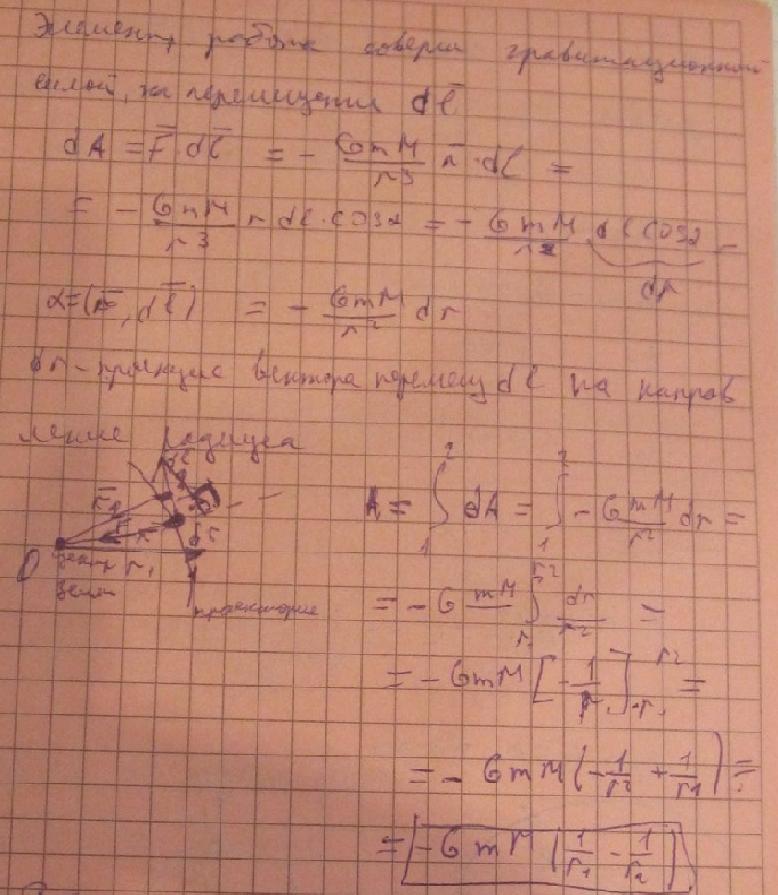 Элемент. работа соверш гравитационной
силой, на перемещении dl̅
dA = F̅·dl̅ = - GmM/r³ r̅·dl̅ =
= - GmM/r³ r dl·cosα = - GmM/r² dl cosα =
dr
α=(r̅, dl̅) = - GmM/r² dr
dr - проекция вектора перемещ dl на направ
ление радиуса
A = ∫₁² dA = ∫₁² - G mM/r² dr =
O центр r₁
Земли
траектория
= - G mM ∫ dr/r² =
= - GmM [-1/r] r₁ r₂ =
= - GmM (-1/r₂ + 1/r₁) =
= - GmM (1/r₁ - 1/r₂)